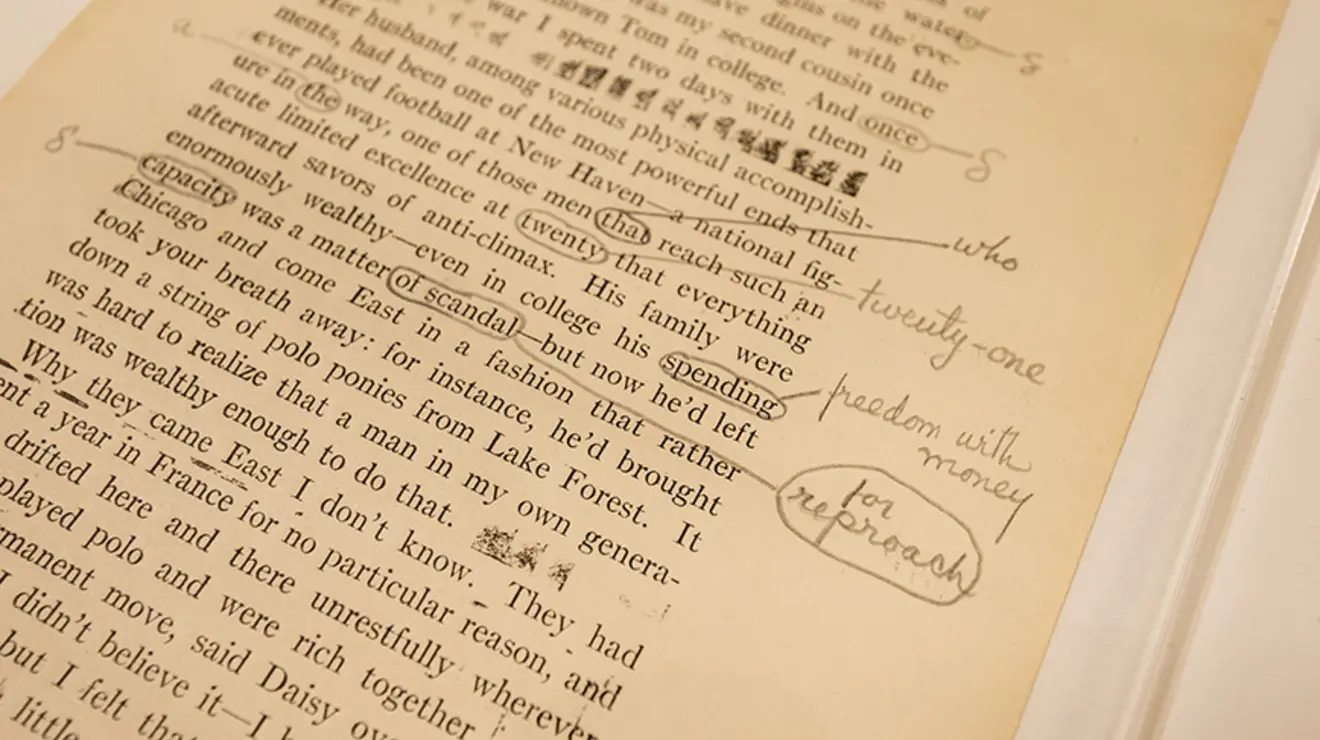 of
the water
on the eve-
have dinner with the
was my second cousin once
known Tom in college. And once
war I spent two days with them in
Her husband, among various physical accomplish-
ments, had been one of the most powerful ends that
ever played football at New Haven—a national fig-
ure in the way, one of those men that reach such an
who
acute limited excellence at twenty that everything
twenty-one
afterward savors of anti-climax. His family were
enormously wealthy—even in college his spending
freedom with
money
capacity was a matter of scandal—but now he'd left
for
reproach
Chicago and come East in a fashion that rather
took your breath away: for instance, he'd brought
down a string of polo ponies from Lake Forest. It
was hard to realize that a man in my own genera-
tion was wealthy enough to do that.
Why they came East I don't know. They had
ent a year in France for no particular reason, and
drifted here and there unrestfully wherever
played polo and were rich together
manent move, said Daisy ove
I didn't believe it—I
but I felt tha
little